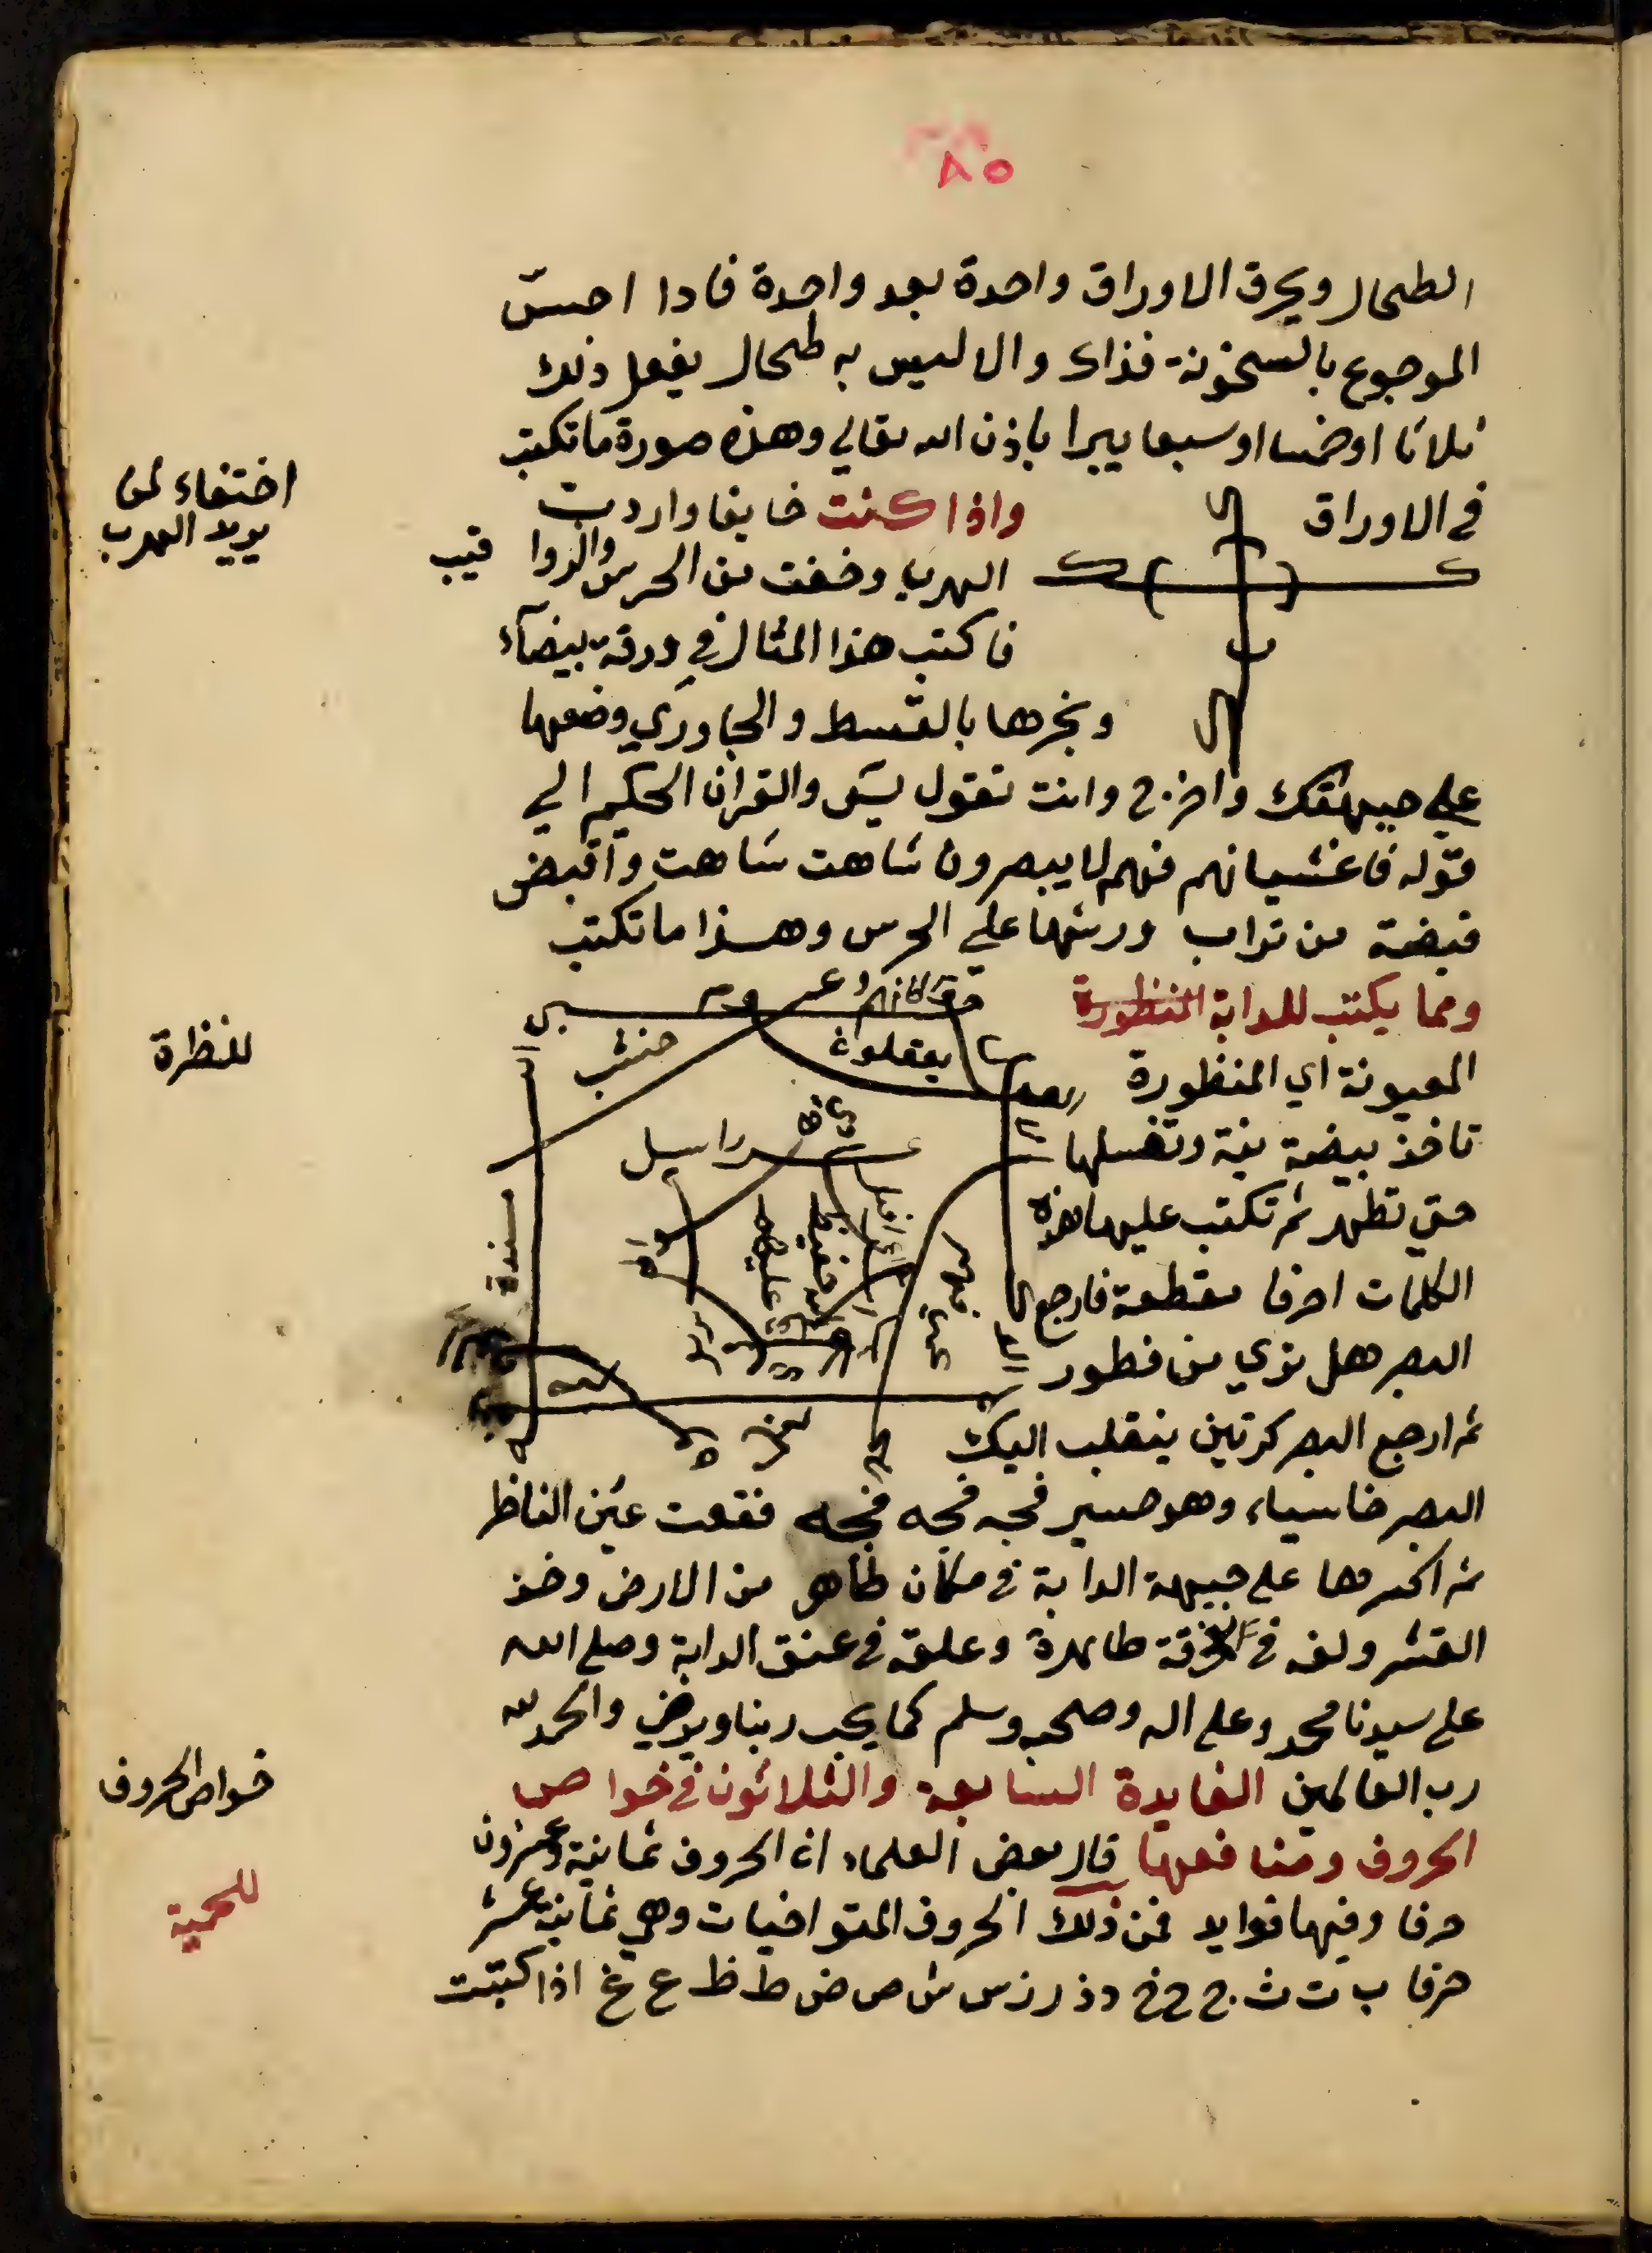 ٨٥
الطحال ويحرق الاوراق واحدة بعد واحدة فادا احسّ
الموجوع بالسخونة فذاك والا ليس به طحال يفعل ذلك
ثلاثا او خمسا او سبعا يبرا باذن الله تعالي وهذه صورة ما تكتب
في الاوراق
واذا كنت خايفا واردت
اختفاء لمن
يريد الهرب
الهرب وخفت من الحرس والروا قيب
فاكتب هذا المثال في ورقة بيضآء
وبخرها بالقسط والجاوري وضعها
علي جبهتك واخرج وانت تقول يسَ والقران الحكيم الي
قوله فاغشيانهم فهم لا يبصرون شاهت شاهت واقبض
قبضة من تراب ورشها علي الحرس وهذا ما تكتب
ومما يكتب للدابة المنظورة
للنظرة
المعيونة اي المنظورة
تاخذ بيضة بنية وتغسلها
حتي تطهر ثم تكتب عليها هذه
الكلمات احرفا مقطعة فارجع
البصر هل تري من فطور
ثم ارجع البصر كرتين ينقلب اليك
يعقلون
البصر خاسياء وهو حسير فجه فجه فجه فقعت عين الناظر
ثم اكسرها علي جبهة الدابة في مكان طاهر من الارض وخذ
القشر ولفه في خرقة طاهرة وعلقه في عنق الدابة وصلي الله
علي سيدنا محمد وعلي اله وصحبه وسلم كما يحب ربنا ويرضي والحمد لله
رب العالمين الفايدة السابعة والثلاثون في خواص
خواص الحروف
الحروف ومنافعها قال بعض العلماء ان الحروف ثمانية وعشرون
للحمية
حرفا وفيها فوايد فمن ذلك الحروف المتواخيات وهي ثمانية عشر
حرفا ب ت ث ج ح خ د ذ ر ز س ش ص ض ط ظ ع غ اذا كتبت